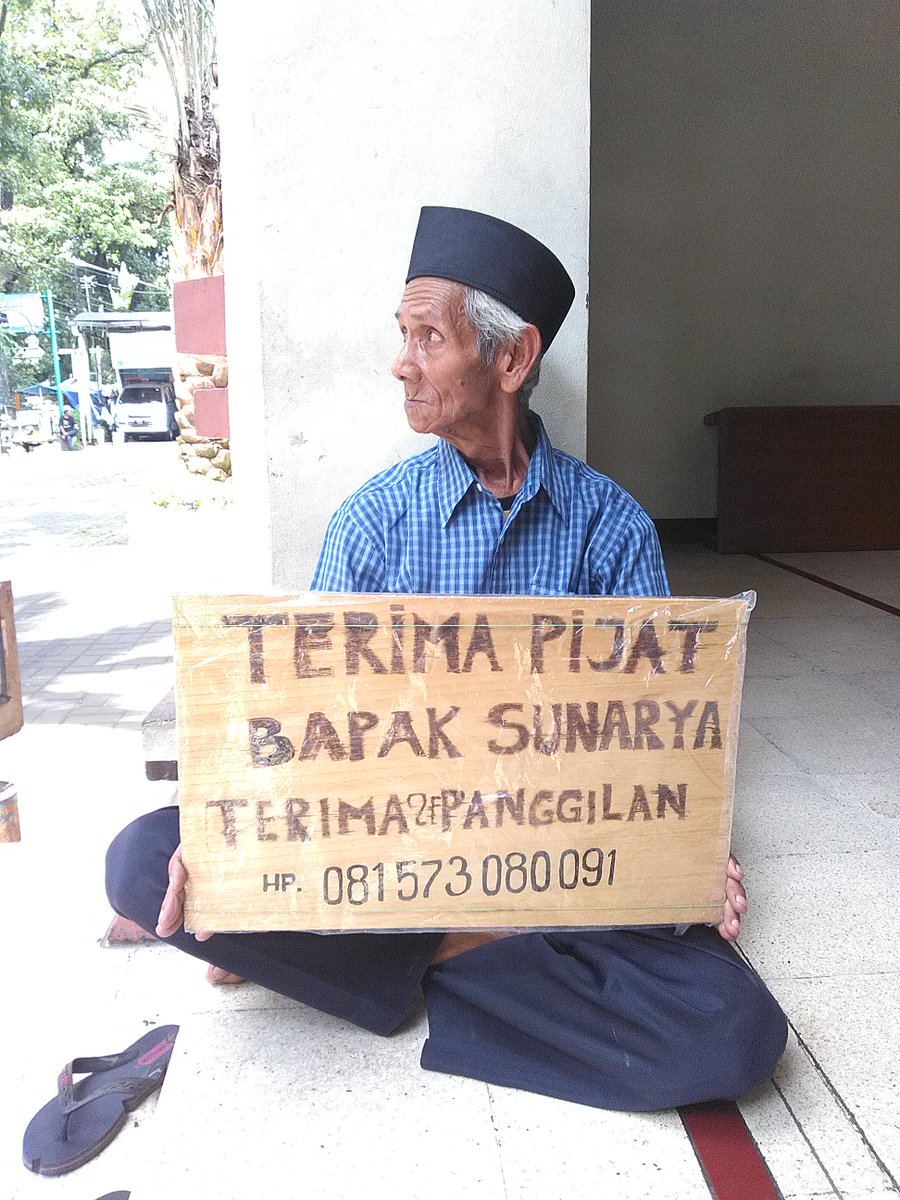 TERiMA PiJAT
BAPAK SUNARYA
TERIMA PANGGILAN
HP. 081573080091